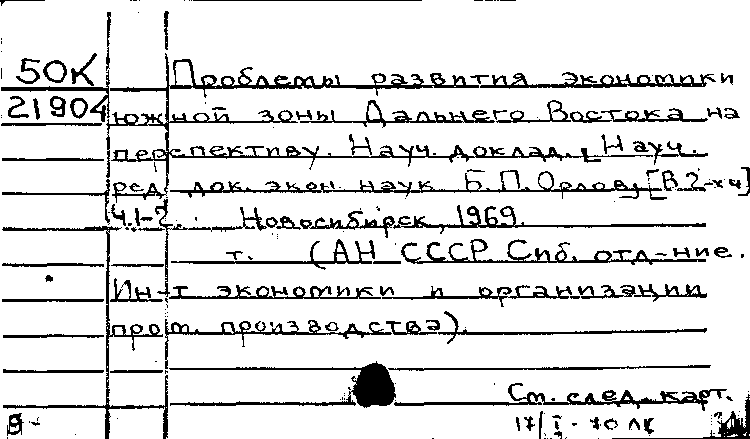 50К Проблемы развития экономики
21904 южной зоны Дальнего Востока на
перспективу. Науч. доклад. [Науч.
ред. док. экон. наук Б.П.Орлов]. [В 2-х ч]
Ч.1-2. Новосибирск, 1969.
т. (АН СССР Сиб. отд-ние.
Ин-т экономики и организации
пром. производства).
См. след. карт.
9- 17/I-70 ЛК